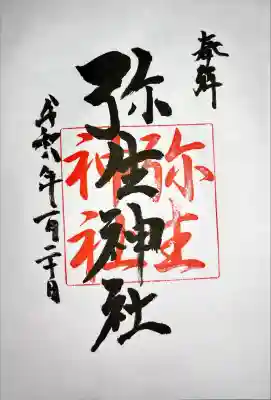 奉拝
弥生神社
弥生
神社
令和六年一月二十日